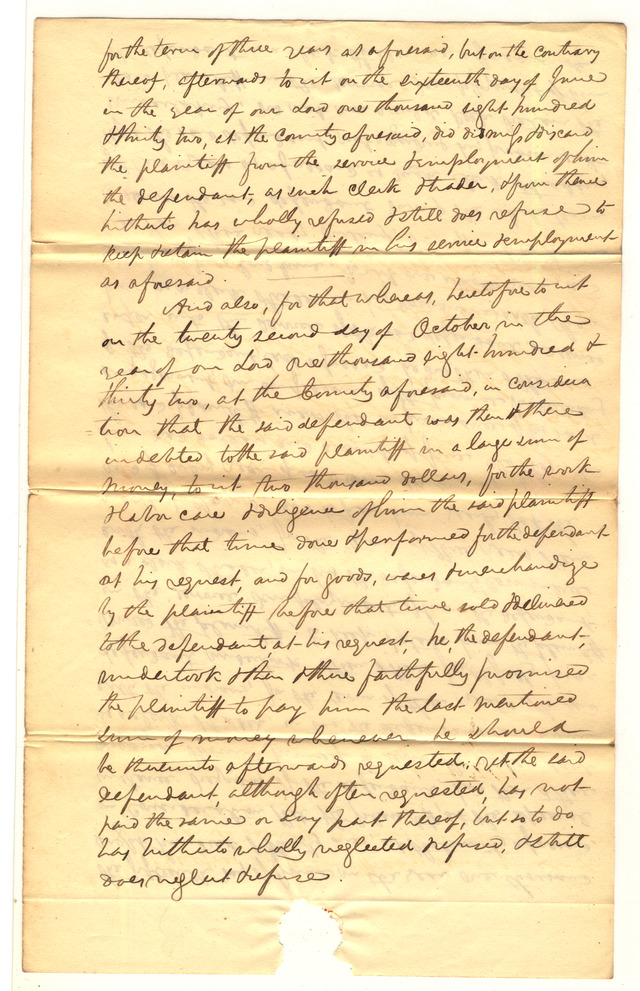 for the term of three years as aforesaid, but on the contrary
thereof, afterwards to wit on the sixteenth day of June
in the year of our Lord one thousand eight hundred
& thirty two, at the County aforesaid, did dismiss & discard
the plaintiff from the service & employment of him
the defendant, as such clerk & trader, & from thence
hitherto has wholly refused & still does refuse to
keep & retain the plaintiff in his service & employment
as aforesaid.
And also, for that whereas, heretofore to wit
on the twenty second day of October in the
year of our Lord one thousand eight hundred &
thirty two, at the County aforesaid, in considera
tion that the said defendant was then & there
indebted to the said plaintiff in a large sum of
money, to wit two thousand dollars, for the work
& labor care & diligence of him the said plaintiff
before that time done & performed for the defendant
at his request, and for goods, wares & merchandize
by the plaintiff before that time sold & delivered
to the defendant, at his request, he, the defendant,
undertook & then & there faithfully promised
the plaintiff to pay him the last mentioned
sum of money whenever he should
be thereunto afterwards requested; yet the said
defendant, although often requested, has not
paid the same or any part thereof, but so to do
has hitherto wholly neglected & refused, & still
does neglect & refuse.